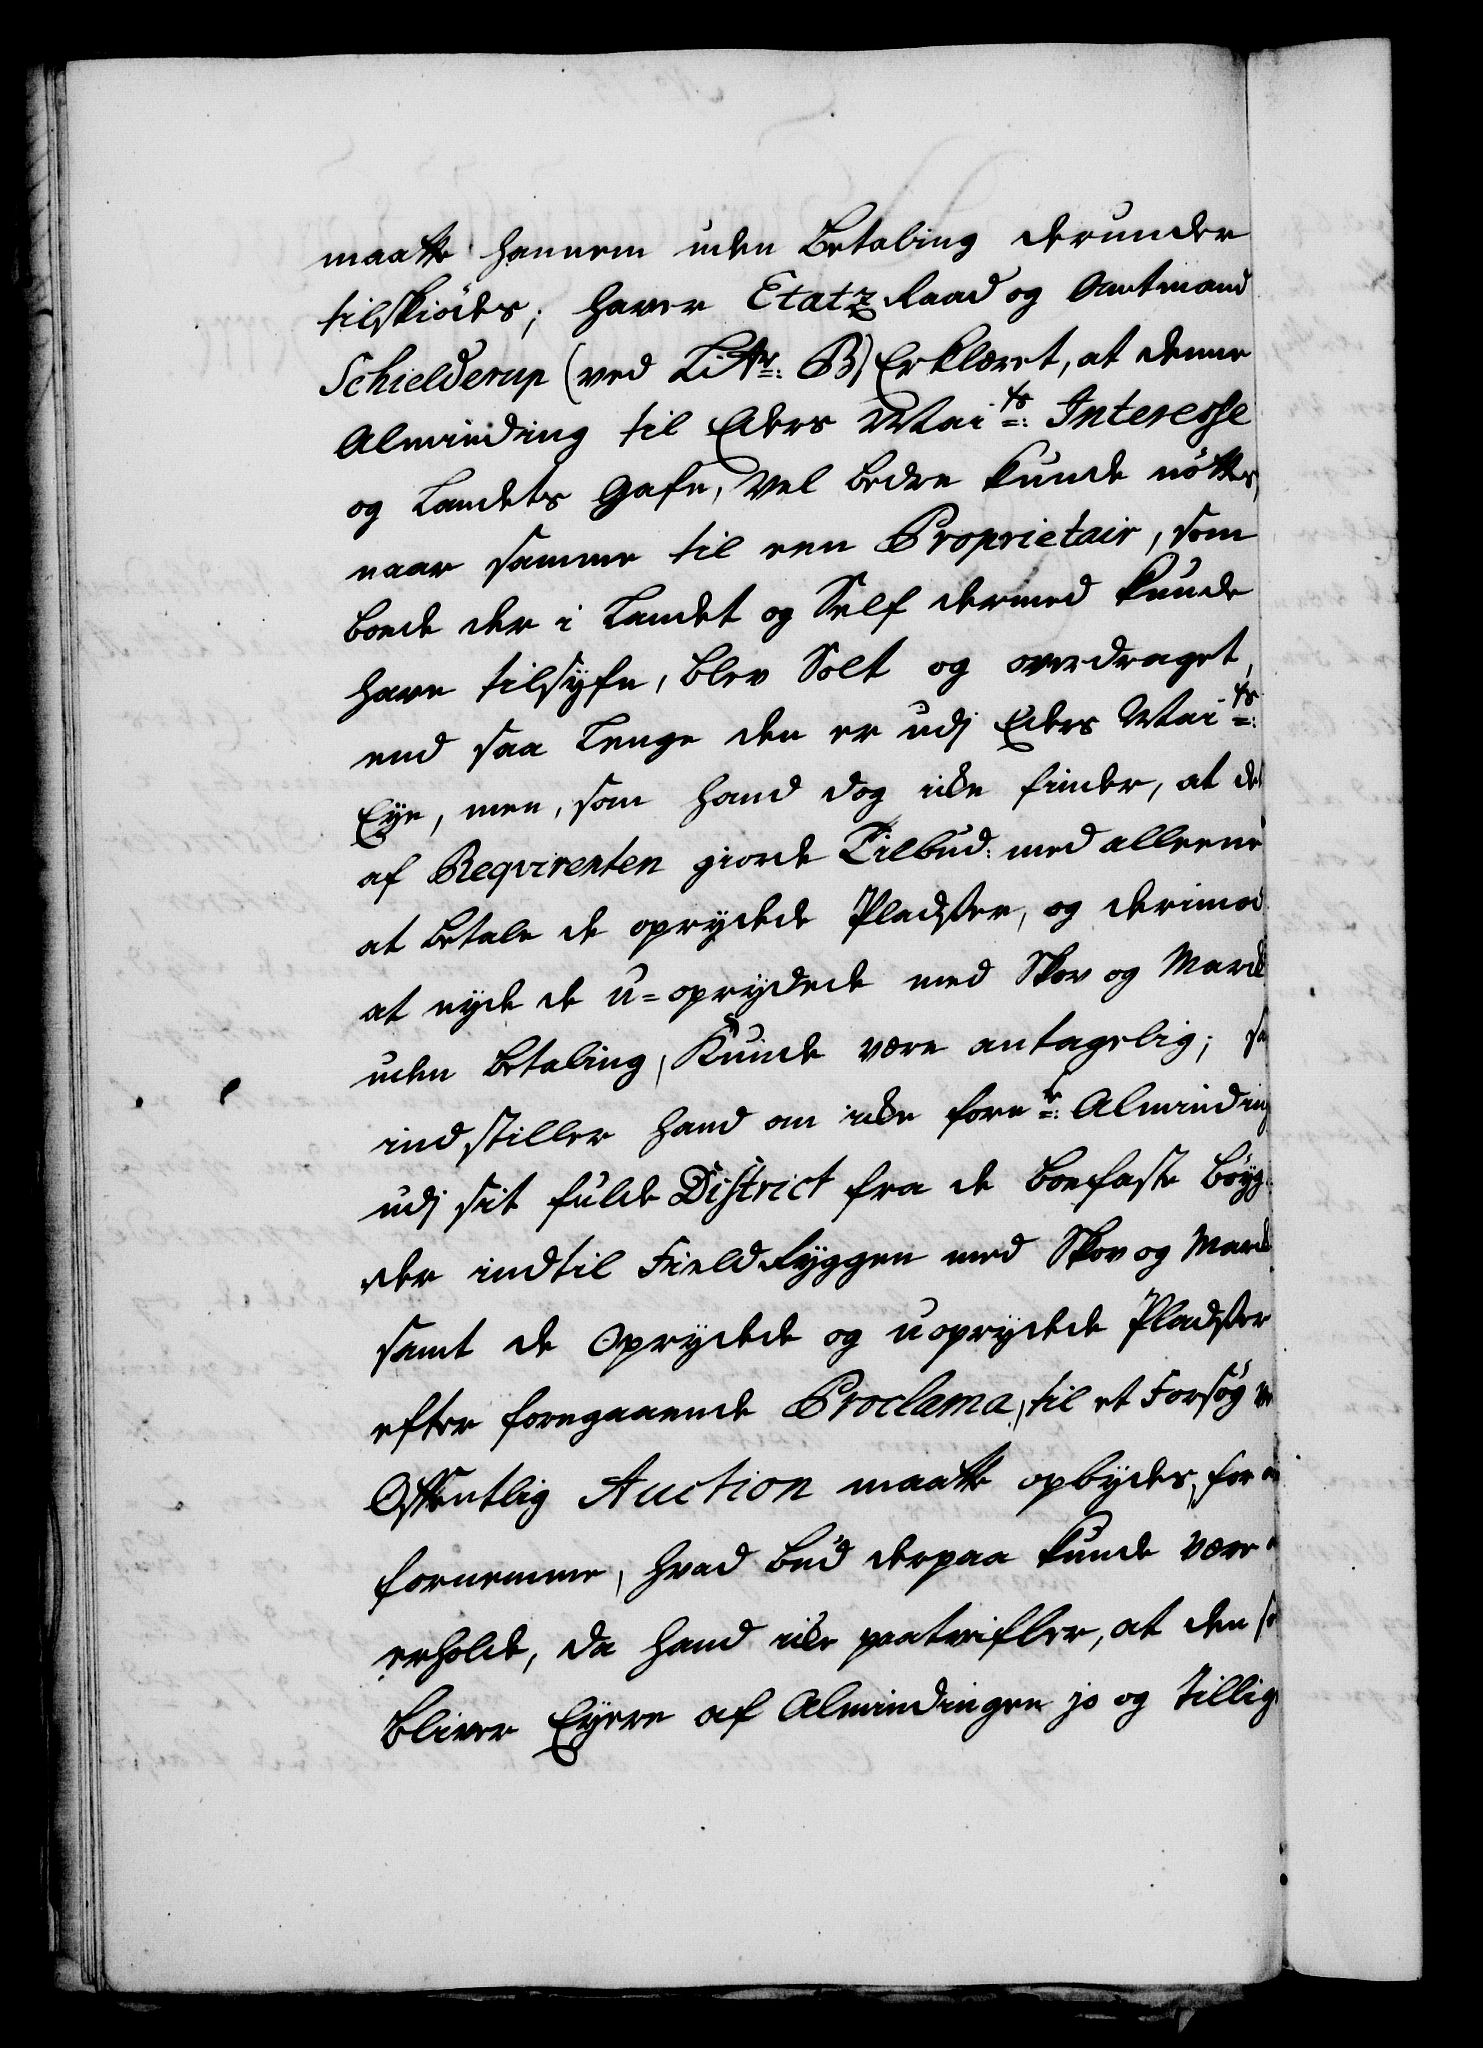 maatte hannem uden Betaling derunder
tilskiødes; haver Etatz Raad og Amtmand
Schielderup (ved Littr: B) Erklæret, at denne
Alminding til Eders Maits: Interesse
og Landets Gafn, Vel bedre kunde nøttes,
naar samme til een Proprietair, som
boede der i Landet og Self dermed kunde
have tilsyfn, blev Solt og overdraget,
end saa Lenge den er udj Eders Maits:
Eye, men, som hand dog icke finder, at det
af Reqvirenten giorde Tilbud: med alleene
at betale de oprydede Pladser, og derimod
at nyde de u-oprydede med Skov og Mark
uden betaling, Kunde være antagelig; saa
indstiller hand om icke forne: Alminding
udj sit fulde District fra de boefaste Bøyg-
der indtil Field Ryggen med Skov og Mark
samt de Oprydede og uoprydede Pladser
efter foregaaende Proclama, til et Forsøg ve
Offentlig Auction maatte opbydes, for at
fornemme, hvad Bud derpaa kunde være at
erholde, da hand icke paatvifler, at den so
bliver Eyere af Almindingen jo og tillige